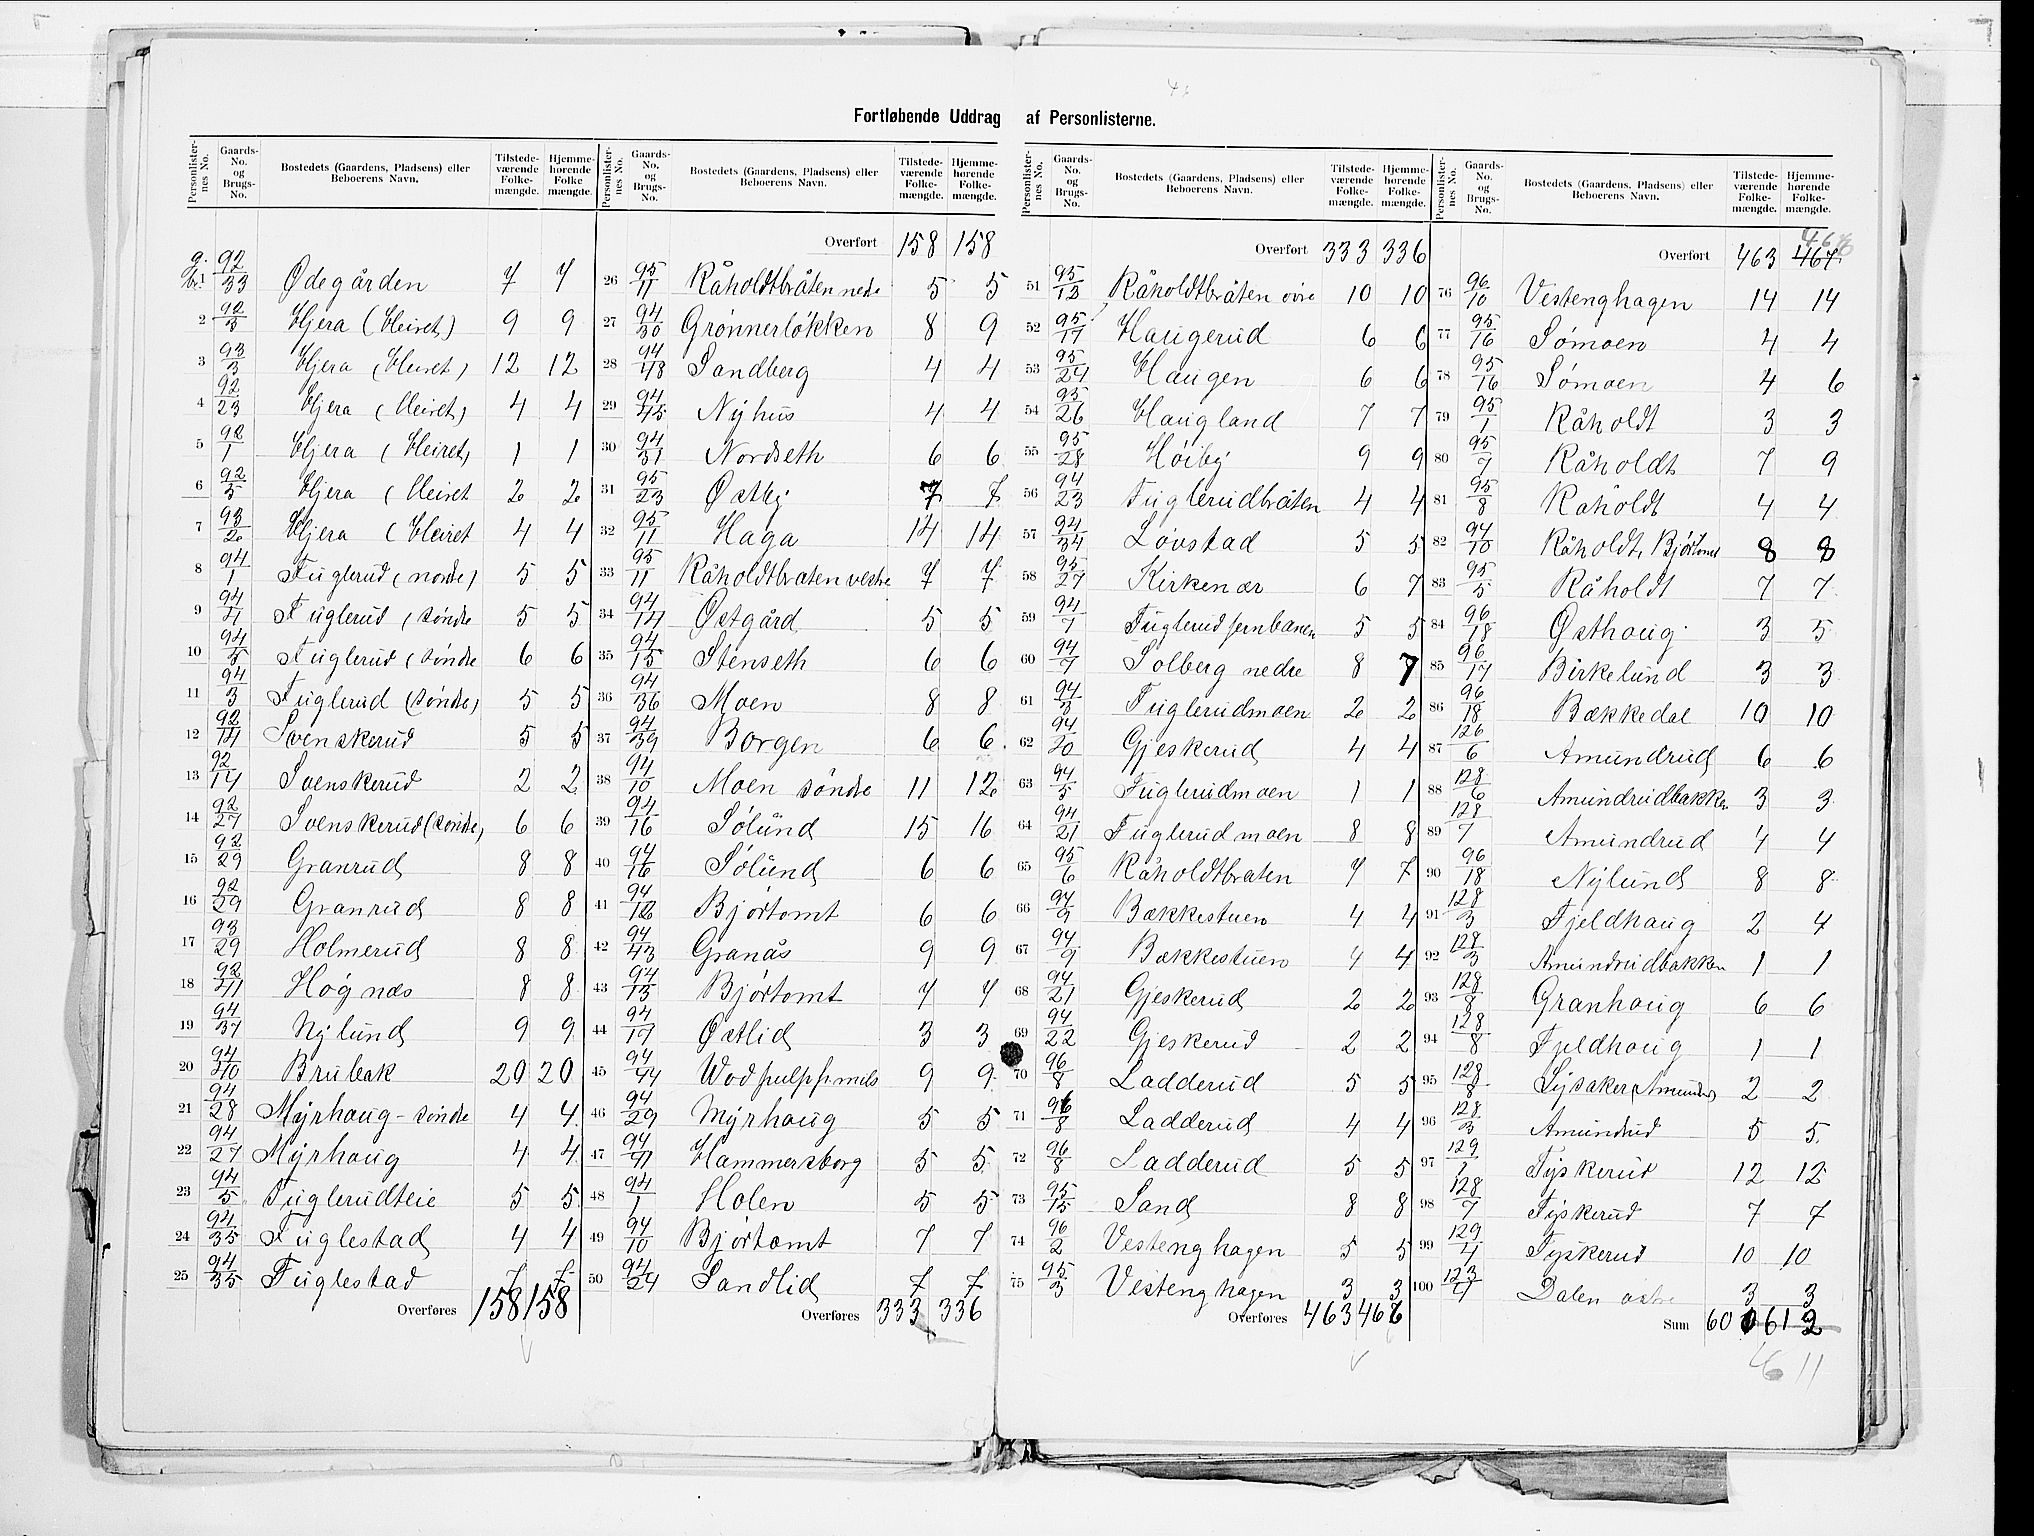 Fortløbende Uddrag af Personlisterne.
Personlister-nes No. Gaards-No. og Brugs-No. Bostedets (Gaardens, Pladsens) eller Beboerens Navn. Tilstede-værende Folke-mængde. Hjemme-hørende Folke mængde.
g. 92
br. 1 33 Ødegården 7 7
2 92/3 Hjera (Heiret) 9 9
3 93/3 Hjera (Heiret) 12 12
4 92/23 Hjera (Heiret) 4 4
5 92/1 Hjera (Heiret) 1 1
6 92/5 Hjera (Heiret 2 2
7 93/2 Hjera (Heiret 4 4
8 94/1 Fuglerud (nordre) 5 5
9 94/4 Fuglerud (søndre 5 5
10 94/5 Fuglerud (søndre 6 6
11 94/3 Fuglerud (søndre) 5 5
12 92/14 Svenskerud 5 5
13 92/14 Svenskerud 2 2
14 92/27 Svenskerud (søndre) 6 6
15 92/29 Granrud 8 8
16 92/29 Granrud 8 8
17 93/29 Holmerud 8 8
18 92/41 Høgnæs 8 8
19 94/37 Nylund 9 9
20 94/40 Brubak 20 20
21 94/28 Myrhaug - søndre 4 4
22 94/27 Myrhaug 4 4
23 94/5 Fuglerudteie 5 5
24 94/35 Fuglestad 4 4
25 94/35 Fuglestad 7 7
Overføres 158 158
Personlister-nes No. Gaards-No. og Brugs-No. Bostedets (Gaardens, Pladsens) eller Beboerens Navn. Tilstede-værende Folke-mængde. Hjemme-hørende Folke-mængde.
Overført 158 158
26 95/11 Råholdtbråten nedre 5 5
27 94/30 Grønnerløkken 8 9
28 94/48 Sandberg 4 4
29 94/45 Nyhus 4 4
30 94/31 Nordseth 6 6
31 95/23 Østby 7 7
32 95/11 Haga 14 14
33 95/11 Råholdtbråten vestre 7 7
34 94/14 Østgård 5 5
35 94/15 Stenseth 6 6
36 94/36 Moen 8 8
37 94/39 Borgen 6 6
38 94/10 Moen søndre 11 12
39 94/16 Sølund 15 16
40 94/16 Sølund 6 6
41 94/12 Bjørtomt 6 6
42 94/43 Granås 9 9
43 94/13 Bjørtomt 7 7
44 94/17 Østlid 3 3
45 94/44 Wodpulpfpmils 9 9
46 94/29 Myrhaug 5 5
47 94/41 Hammersborg 5 5
48 94/1 Holen 5 5
49 94/10 Bjørtomt 7 7
50 94/24 Sandlid 7 7
Overføres 333 336
Personlister-nes No. Gaards-No. og Brugs-No. Bostedets (Gaardens, Pladsens) eller Beboerens Navn. Tilstede-værende Folke-mængde. Hjemme-hørende Folke-mængde.
Overført 333 336
51 95/13 Råholdtbråten øvre 10 10
52 95/17 Haugerud 6 6
53 95/24 Haugen 6 6
54 95/26 Haugland 7 7
55 95/28 Høiby 9 9
56 94/23 Fuglerudbråten 4 4
57 94/34 Løvstad 5 5
58 95/27 Kirkenær 6 7
59 94/7 Fuglerud jernbanen 5 5
60 94/7 Solberg nedre 8 7
61 94/3 Fuglerudmoen 2 2
62 94/20 Gjeskerud 4 4
63 94/5 Fuglerudmoen 1 1
64 94/21 Fuglerudmoen 8 8
65 95/6 Råholdtbraten 7 7
66 94/9 Bækkestuen 4 4
67 94/9 Bækkestuen 4 4
68 94/21 Gjeskerud 2 2
69 94/22 Gjeskerud 2 2
70 96/8 Ladderud 5 5
71 96/8 Ladderud 4 4
72 96/8 Ladderud 5 5
73 95/15 Sand 8 8
74 96/2 Vestenghagen 5 5
75 95/3 Vestenghagen 3 3
Overføres 463 466
Personlister-nes No. Gaards-No. og Brugs-No. Bostedets (Gaardens, Pladsens) eller Beboerens Navn. Tilstede-værende Folke-mængde. Hjemme-hørende Folke-mængde.
466
Overført 463 467
76 96/10 Vestenghagen 14 14
77 95/16 Sømoen 4 4
78 95/16 Sømoen 4 6
79 95/1 Råholdt 3 3
80 95/7 Råholdt 7 9
81 95/8 Råholdt 4 4
82 94/10 Råholdt, Bjørtomt 8 8
83 95/5 Råholdt 7 7
84 96/18 Østhaug 3 5
85 96/17 Birkelund 3 3
86 96/18 Bækkedal 10 10
87 126/6 Amundrud 6 6
88 128/6 Amundrudbakken 3 3
89 128/7 Amundrud 4 4
90 96/18 Nylund 8 8
91 128/3 Fjeldhaug 2 4
92 128/3 Amundrudbakken 1 1
93 128/8 Granhaug 6 6
94 128/8 Fjeldhaug 1 1
95 128/8 Lysaker (Amundrud) 2 2
96 128/3 Amundrud 5 5
97 129/1 Tyskerud 12 12
98 128/7 Tyskerud 7 7
99 129/4 Tyskerud 10 10
100 123/4 Dalen østre 3 3
Sum 600 612
611